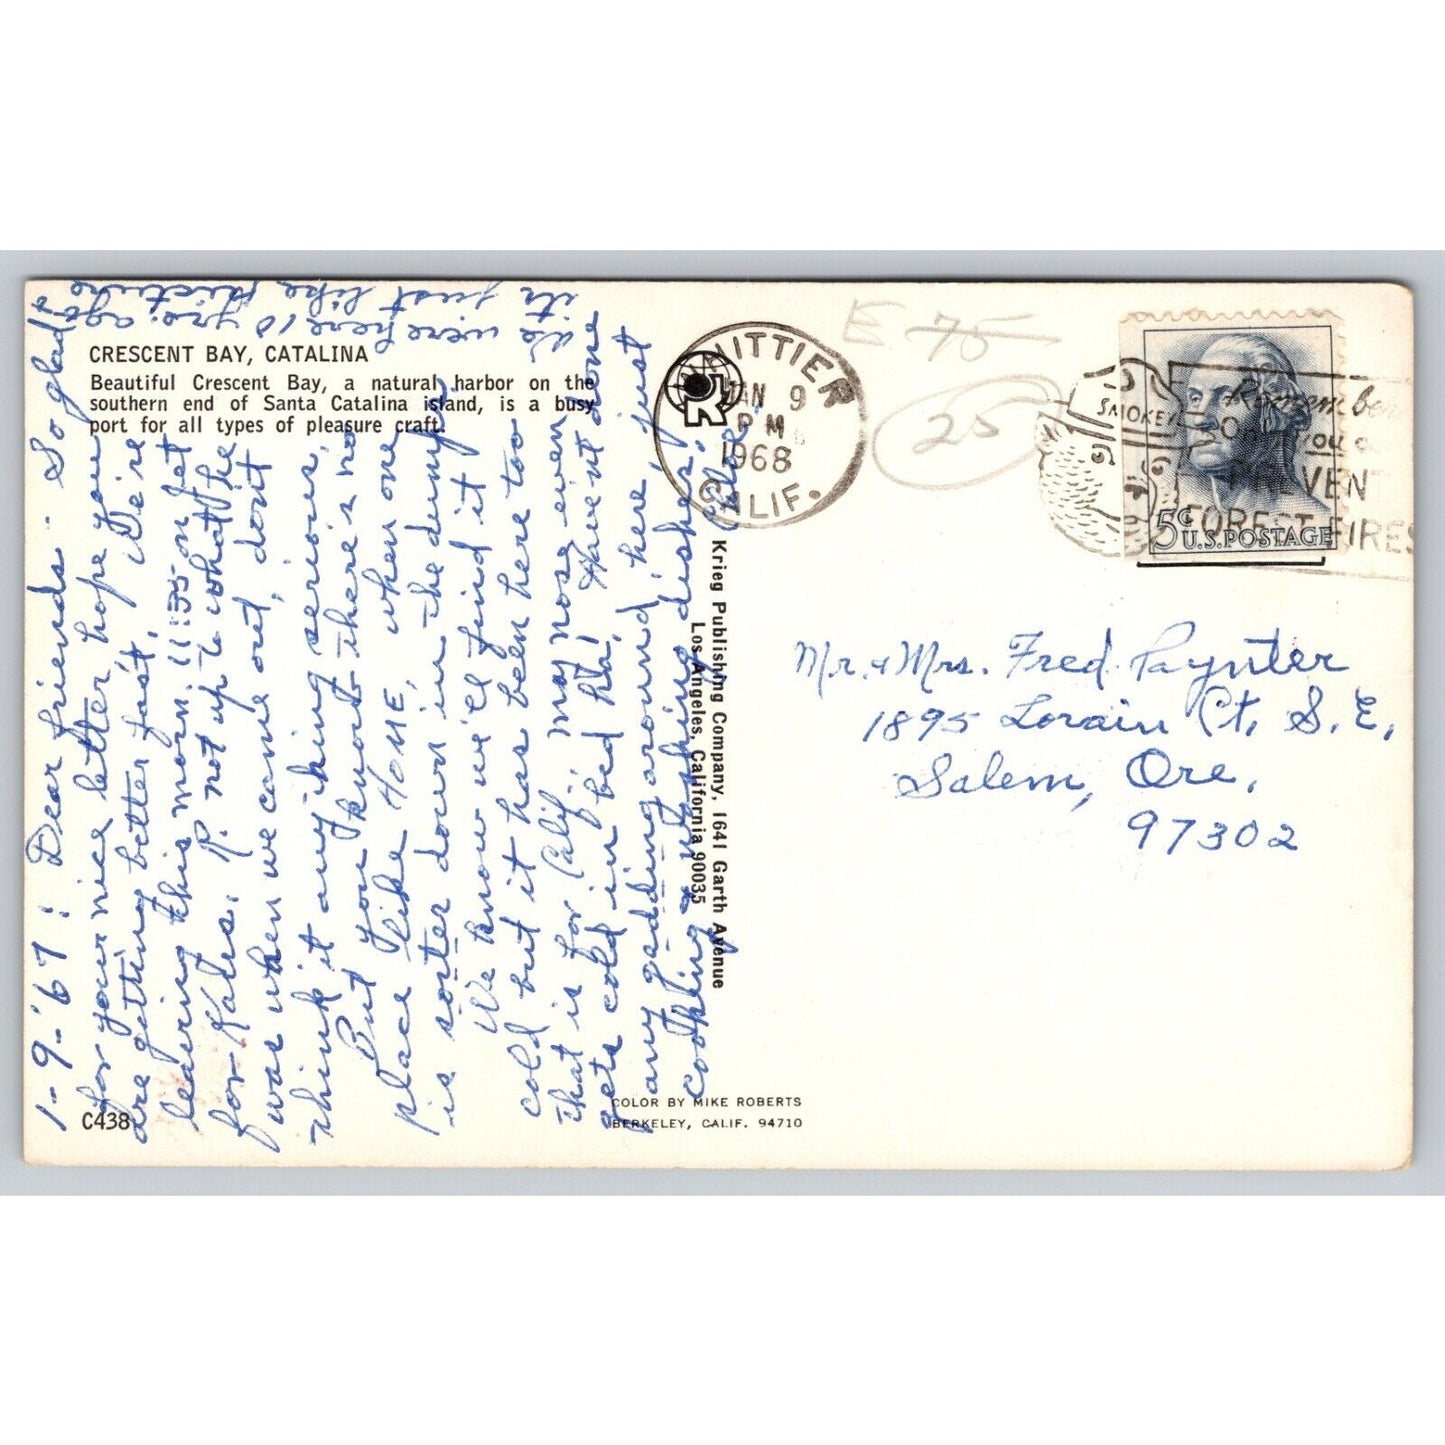 CRESCENT BAY, CATALINA
Beautiful Crescent Bay, a natural harbor on the
southern end of Santa Catalina island, is a busy
port for all types of pleasure craft.
1-9-'67: Dear friends - So glad
for your nice letter, hope you
are getting better fast. We're
leaving this morn. 11:35 on Jet
for Kals. P. not up to what he
was when we came out, don't
think it anything serious.
But you know there's no
place like HOME, when one
is sorter down in the dumps.
We know we'll find it
cold but it has been here too
that is for Calif; my nose even
gets cold in bed ha! Haven't done
any gadding around here, just
cooking & washing dishes!
We were here 10 yrs. ago &
its just like picture
C438
COLOR BY MIKE ROBERTS
BERKELEY, CALIF. 94710
Krieg Publishing Company, 1641 Garth Avenue
Los Angeles, California 90035
K
WHITTIER
JAN 9
PM
1968
CALIF.
E 75
25
SMOKEY
Remember
Only you
PREVENT
FOREST FIRES
5¢
U.S. POSTAGE
Mr. & Mrs. Fred Paynter
1895 Lorain Ct. S.E.
Salem, Ore.
97302